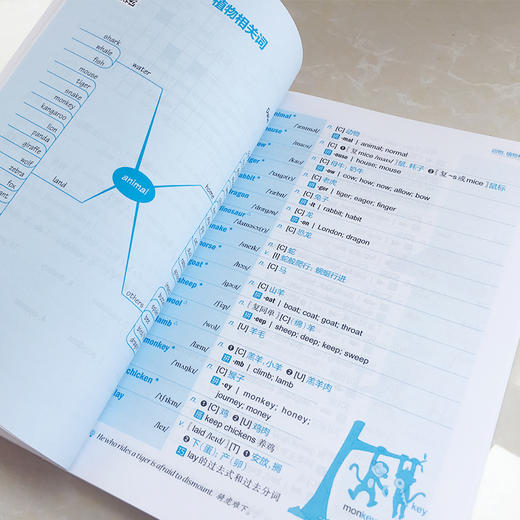 植物相关词
shark
whale
fish
mouse
tiger
snake
monkey
kangaroo
lion
panda
giraffe
wolf
zebra
fox
water
land
animal
others
动物、植物
animal *
n. [C] 动物
-mal | animal; normal
n. [C] ❶ [复 mice /maɪs/] 鼠, 耗子 ❷ [复 -s 或 mice] 鼠标
-ouse | house; mouse
n. [C] 母牛; 奶牛
-ow | cow; how; now; allow; bow
老虎
-ger | tiger; eager; finger
n. [C] 兔子
-it | rabbit; habit
n. [C] 龙
-on | London; dragon
n. [C] 恐龙
n. [C] 蛇
v. [I] 蛇般爬行; 蜿蜒行进
n. [C] 马
goat *
/ɡəʊt/
n. [C] 山羊
-oat | boat; coat; goat; throat
sheep *
/ʃiːp/
n. [复同单] [C] (绵)羊
-eep | sheep; deep; keep; sweep
wool
n. [U] 羊毛
lamb
/læm/
n. ❶ [C] 羔羊, 小羊 ❷ [U] 羔羊肉
-mb | climb; lamb
monkey *
/ˈmʌŋki/
n. [C] 猴子
-ey | monkey; honey;
journey; money
chicken *
/ˈtʃɪkɪn/
n. ❶ [C] 鸡 ❷ [U] 鸡肉
keep chickens 养鸡
lay
/leɪ/
v. [laid /leɪd/] [T] ❶ 安放, 搁
❷ 下(蛋); 产(卵)
lay的过去式和过去分词
He who rides a tiger is afraid to dismount. 骑虎难下。
monkey
key